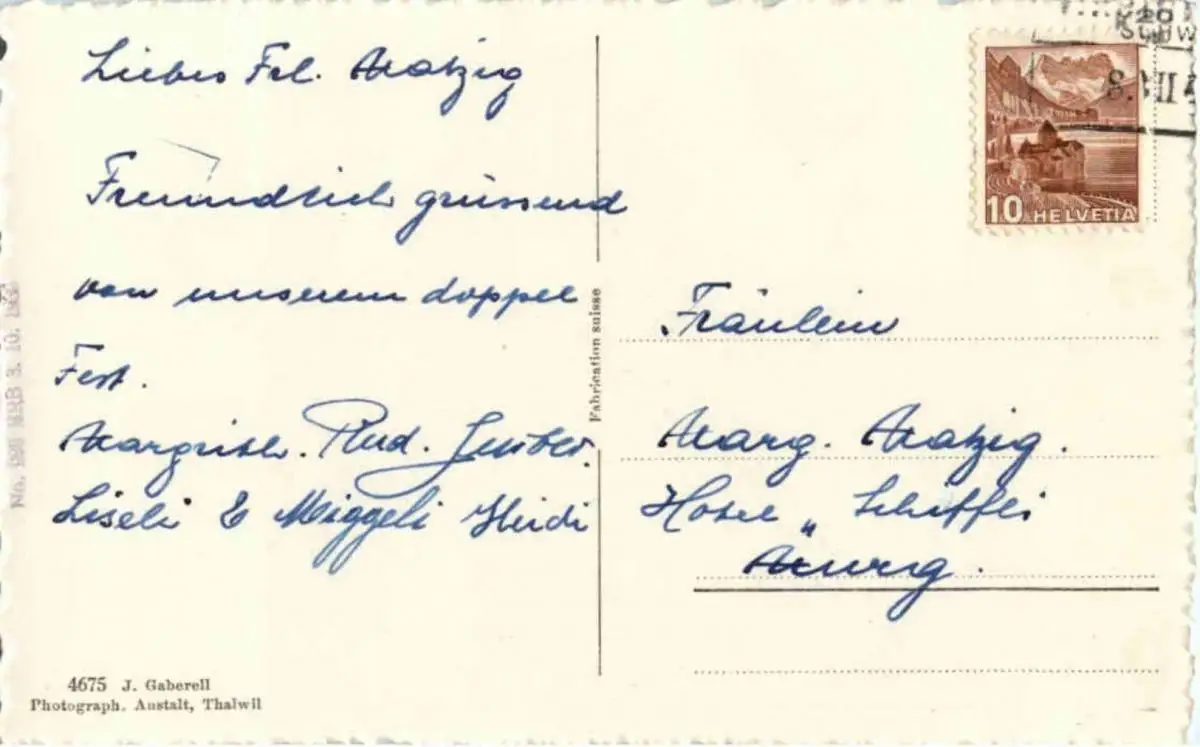 Liebes Frl. Matzig
Freundlich grüssend
von unserem doppel
Fest.
Margrith. Rud.
Liseli & Miggeli Heidi
4675 J. Gaberell
Photograph. Anstalt, Thalwil
Fabrication suisse
No. MRB 3. 10.
20
8.VII 4
10 HELVETIA
Fräulein
Marg. Matzig.
Hotel „ Schiffli